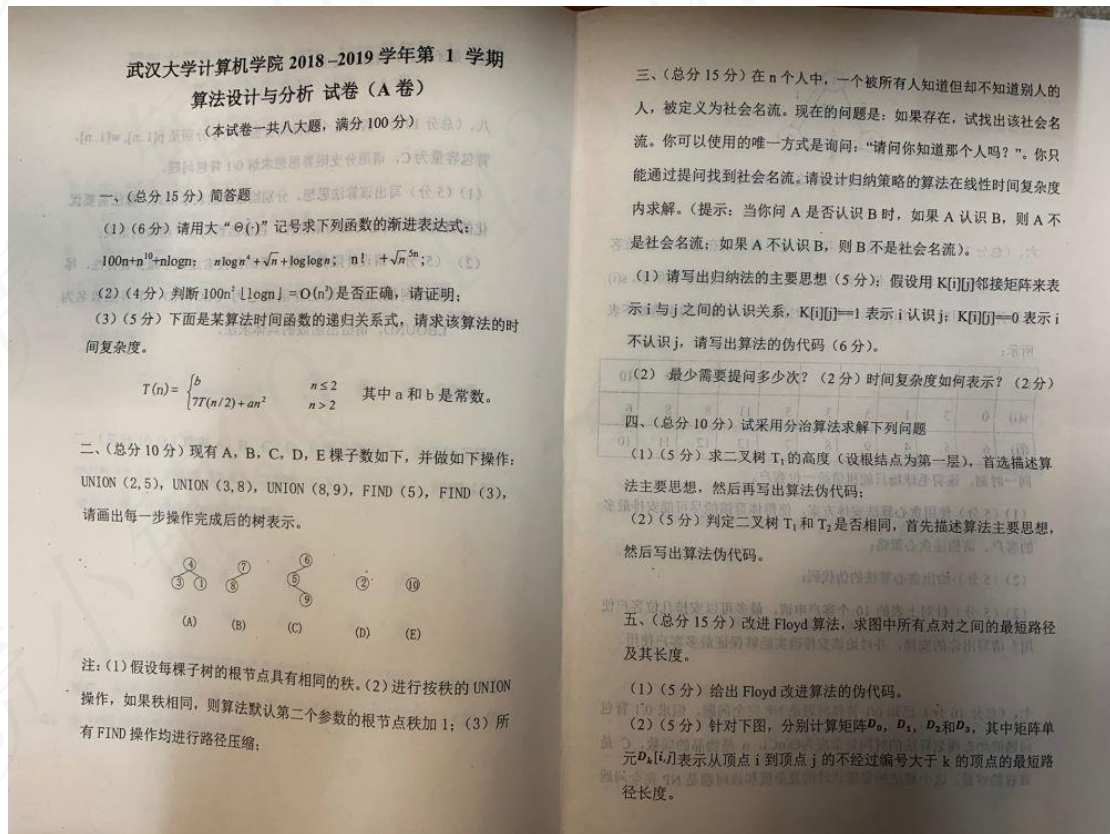 武汉大学计算机学院 2018–2019 学年第 1 学期
算法设计与分析 试卷（A 卷）
（本试卷一共八大题，满分 100 分）
一、（总分 15 分）简答题
（1）（6 分）请用大“Θ(·)”记号求下列函数的渐进表达式：
100n+n^10+nlogn； n log n^4 + √n + log log n； n! +√n^5n；
（2）（4 分）判断 100n²⌊logn⌋ = O(n³)是否正确，请证明；
（3）（5 分）下面是某算法时间函数的递归关系式，请求该算法的时
间复杂度。
T(n)= { b n ≤ 2
7T(n/2)+an² n > 2 其中 a 和 b 是常数。
二、（总分 10 分）现有 A，B，C，D，E 棵子数如下，并做如下操作：
UNION（2,5），UNION（3,8），UNION（8,9），FIND（5），FIND（3），
请画出每一步操作完成后的树表示。
④ ⑦ ⑥
③ ① ⑧ ⑤ ② ⑩
⑨
(A) (B) (C) (D) (E)
注：(1) 假设每棵子树的根节点具有相同的秩。(2) 进行按秩的 UNION
操作，如果秩相同，则算法默认第二个参数的根节点秩加 1；（3）所
有 FIND 操作均进行路径压缩；
三、（总分 15 分）在 n 个人中，一个被所有人知道但却不知道别人的
人，被定义为社会名流。现在的问题是：如果存在，试找出该社会名
流。你可以使用的唯一方式是询问：“请问你知道那个人吗？”。你只
能通过提问找到社会名流。请设计归纳策略的算法在线性时间复杂度
内求解。（提示：当你问 A 是否认识 B 时，如果 A 认识 B，则 A 不
是社会名流；如果 A 不认识 B，则 B 不是社会名流）。
（1）请写出归纳法的主要思想（5 分）；假设用 K[i][j]邻接矩阵来表
示 i 与 j 之间的认识关系，K[i][j]==1 表示 i 认识 j；K[i][j]==0 表示 i
不认识 j，请写出算法的伪代码（6 分）。
（2） 最少需要提问多少次？（2 分）时间复杂度如何表示？（2 分）
四、（总分 10 分）试采用分治算法求解下列问题
（1）（5 分）求二叉树 T₁的高度（设根结点为第一层），首选描述算
法主要思想，然后再写出算法伪代码；
（2）（5 分）判定二叉树 T₁和 T₂是否相同，首先描述算法主要思想，
然后写出算法伪代码。
五、（总分 15 分）改进 Floyd 算法，求图中所有点对之间的最短路径
及其长度。
（1）（5 分）给出 Floyd 改进算法的伪代码。
（2）（5 分）针对下图，分别计算矩阵D₀，D₁，D₂和D₃，其中矩阵单
元Dₖ[i,j]表示从顶点 i 到顶点 j 的不经过编号大于 k 的顶点的最短路
径长度。